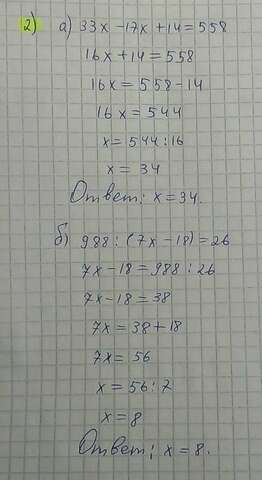 2) а) 33x -17x +14 = 558
16x + 14 = 558
16x = 558 - 14
16x = 544
x = 544 : 16
x = 34
Ответ: x = 34.
б) 988 : (7x - 18) = 26
7x - 18 = 988 : 26
7x - 18 = 38
7x = 38 + 18
7x = 56
x = 56 : 7
x = 8
Ответ: x = 8.